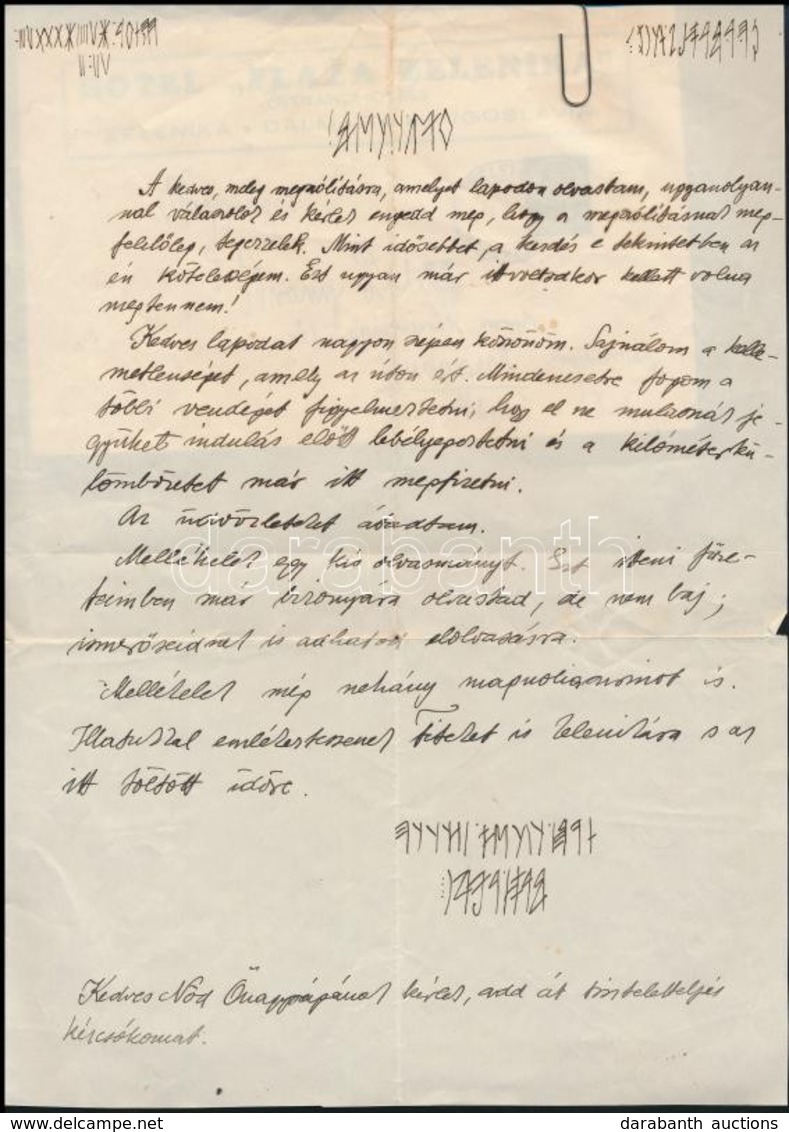 A kedves, meleg megszólításra, amelyet lapodon olvastam, ugyanolyan-
nal válaszolok és kérlek engedd meg, hogy a megszólításnak meg-
felelőleg, tegezzelek. Mint idősebbet, a kezdés e tekintetben az
én kötelességem. Ezt ugyan már ittvoltadkor kellett volna
megtennem!
Kedves lapodat nagyon szépen köszönöm. Sajnálom a kelle-
metlenséget, amely az úton ért. Mindenesetre fogom a
többi vendéget figyelmeztetni, hogy el ne mulasszák je-
gyüket indulás előtt lebélyegeztetni és a kilométerkü-
lömbözetet már itt megfizetni.
Az üdvözleteket átadtam.
Mellékelek egy kis olvasmányt. Ezt itteni füze-
teimben már bizonyára olvastad, de nem baj;
ismerőseidnek is adhatod elolvasásra.
Mellékelek még néhány magnoliaszirmot is.
Illatukkal emlékeztessenek Titeket is Zelenikára s az
itt töltött időre.
Kedves Nőd Őnagyságának kérlek, add át tiszteletteljes
kézcsókomat.
HOTEL "PLAŽA" ZELENIKA
darabanth
darabanth auctions